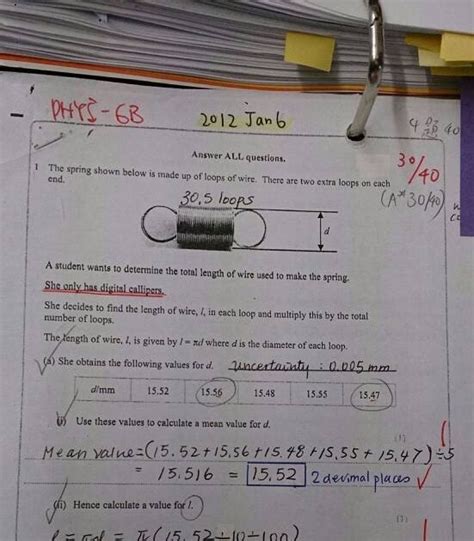 PHYS-6B
2012 Jan 6
40
Answer ALL questions.
30/40
(A* 30/40)
1 The spring shown below is made up of loops of wire. There are two extra loops on each
end.
30.5 loops
d
A student wants to determine the total length of wire used to make the spring.
She only has digital callipers.
She decides to find the length of wire, l, in each loop and multiply this by the total
number of loops.
The length of wire, l, is given by l = πd where d is the diameter of each loop.
(a) She obtains the following values for d. uncertainty : 0.005 mm
d/mm 15.52 15.56 15.48 15.55 15.47
(i) Use these values to calculate a mean value for d.
(1)
1
Mean value=(15.52+15.56+15.48+15.55+15.47)÷5
= 15.516 = 15.52 2 decimal places
(ii) Hence calculate a value for l.
(1)
l = πd = π(15.52÷10÷100)